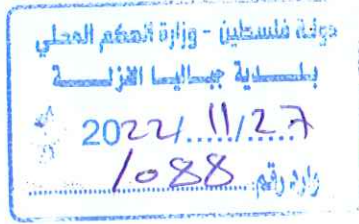 دولة فلسطين - وزارة الحكم المحلي
بلدية جباليا النزلة
2022/11/27
وارد رقم 1088